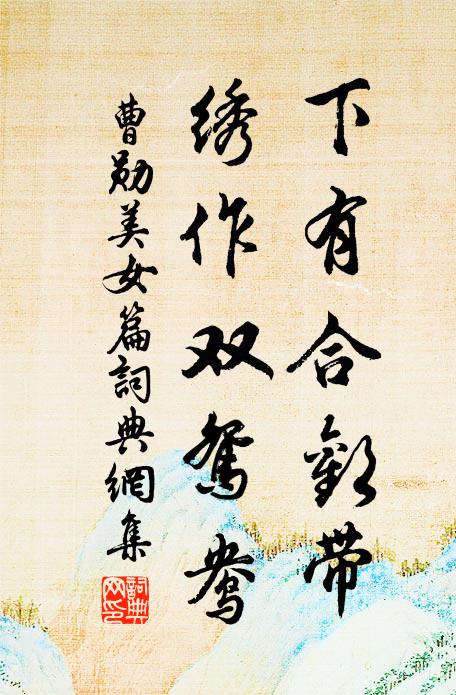 下有合歡带
绣作双鸳鸯
曹勋美女篇詞典網集
詞典网印